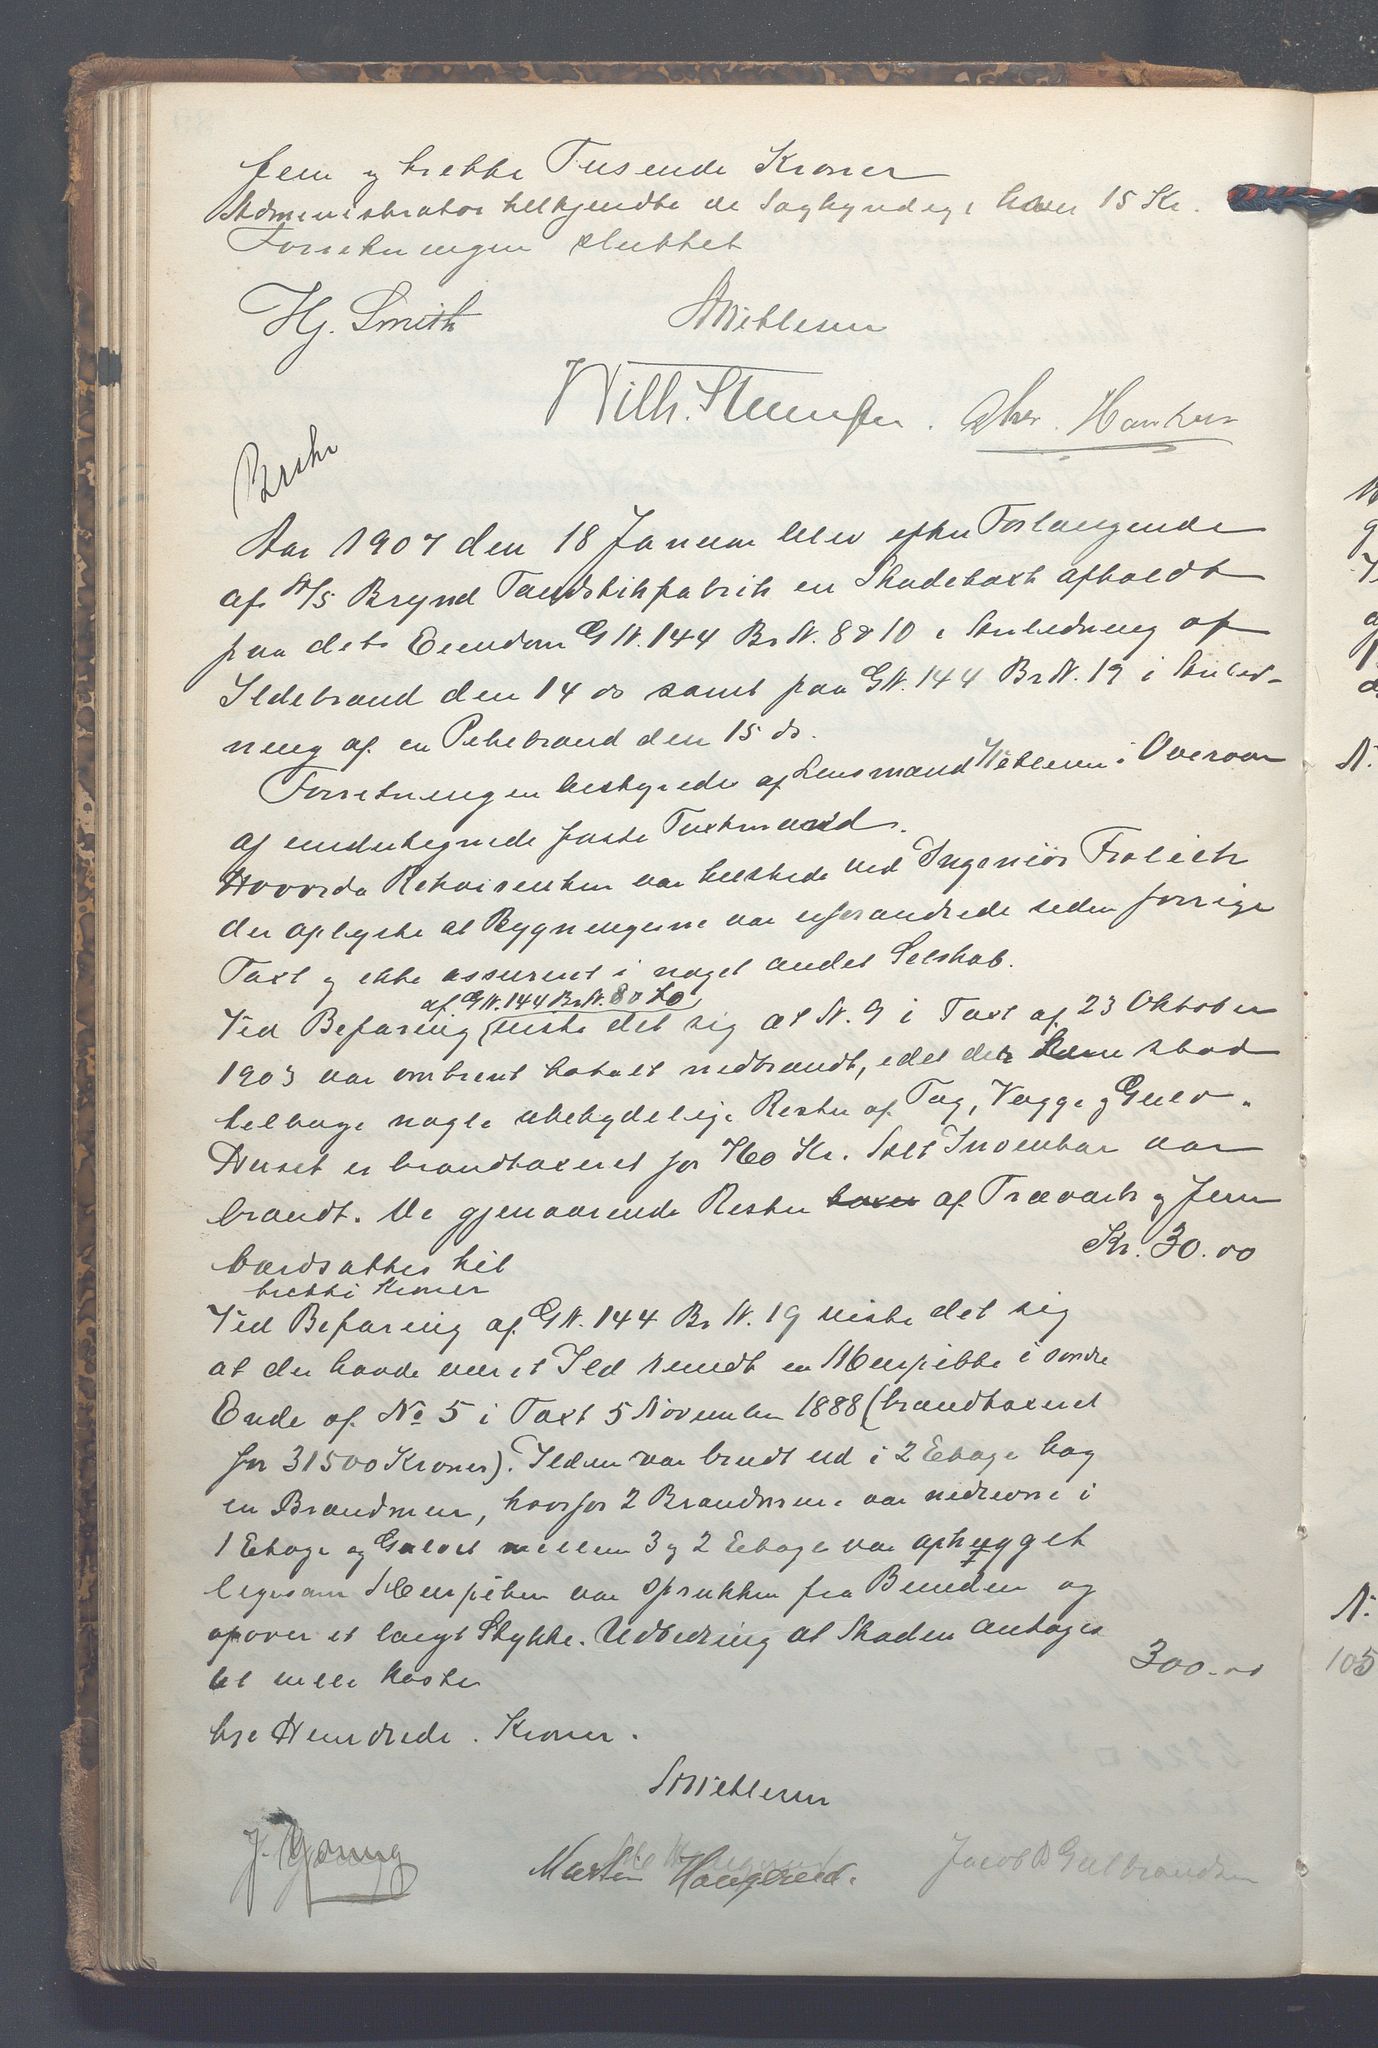 fem og trette Tusende Kroner
Administrator tilkjendte de Sagkyndige hver 15 Kr.
Forretningen sluttet
Hj. Smith
Wilh. Stumpf Chr. Hansen
Brskr
Aar 1907 den 18 Januar blev efter Forlangende
af A/S Brynd Tændstikfabrik en Skadetaxt afholdt
paa dets Eiendom G N. 144 Br N. 8 & 10 i Anledning af
Ildebrand den 14 ds samt paa G N. 144 Br N. 19 i Anled-
ning af en Pibebrand den 15 ds.
Forretningen bestyredes af Lensmand i
af undertegnede faste Taxtmænd.
Hvorda Rekvirenten var tilstede ved Ingeniør Frølich
der oplyste at Bygningerne var uforandrede siden forrige
Taxt og ikke assureret i noget andet Selskab.
af G N. 144 Br N. 8 & 10
Ved Befaring viste det sig at N. 9 i Taxt af 23 Oktober
1903 var ombrent totalt nedbrændt, idet der kun stod
tilbage nogle ubetydelige Rester af Tag, Vægge og Gulv.
Huset er brandtaxeret for 760 Kr. Alt Inventar var
brændt. De gjenværende Rester af Træværk og Jern
værdsattes til Kr. 30.00
tretti Kroner
Ved Befaring af G N. 144 Br N. 19 viste det sig
at der havde været Ild rundt en Murpibe i søndre
Ende af No 5 i Taxt 5 November 1888 (brandtaxeret
for 31500 Kroner). Ilden var brudt ud i 2 Etage bag
en Brandmur, hvorfor 2 Brandmure var nedrevne i
1 Etage og Gulvet mellem 3 og 2 Etage var ophugget
ligesom Murpiben var sprukken fra Bunden og
opover et langt Stykke. Udbedring af Skaden antages
at ville koste 300.00
tre Hundrede Kroner.
J. Young Martin Haugerud. Jacob B Gulbrandsen
N.
N.
105